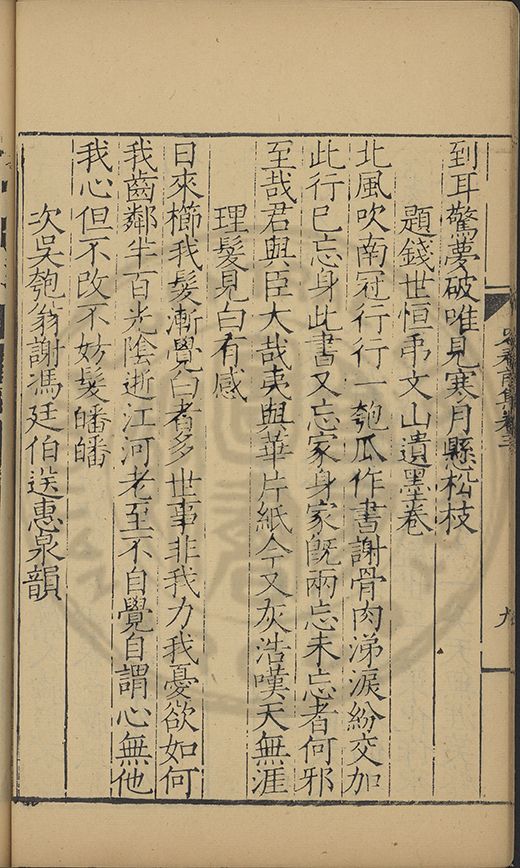 到耳驚夢破唯見寒月懸松枝
題錢世恒弔文山遺墨卷
北風吹南冠行行一匏瓜作書謝骨肉涕淚紛交加
此行已忘身此書又忘家身家既兩忘未忘者何邪
至哉君與臣大哉夷與華片紙今又灰浩嘆天無涯
理髮見白有感
日來櫛我髮漸覺白者多世事非我力我憂欲如何
我齒鄰半百光陰逝江河老至不自覺自謂心無他
我心但不改不妨髮皤皤
次吳匏翁謝馮廷伯送惠泉韻